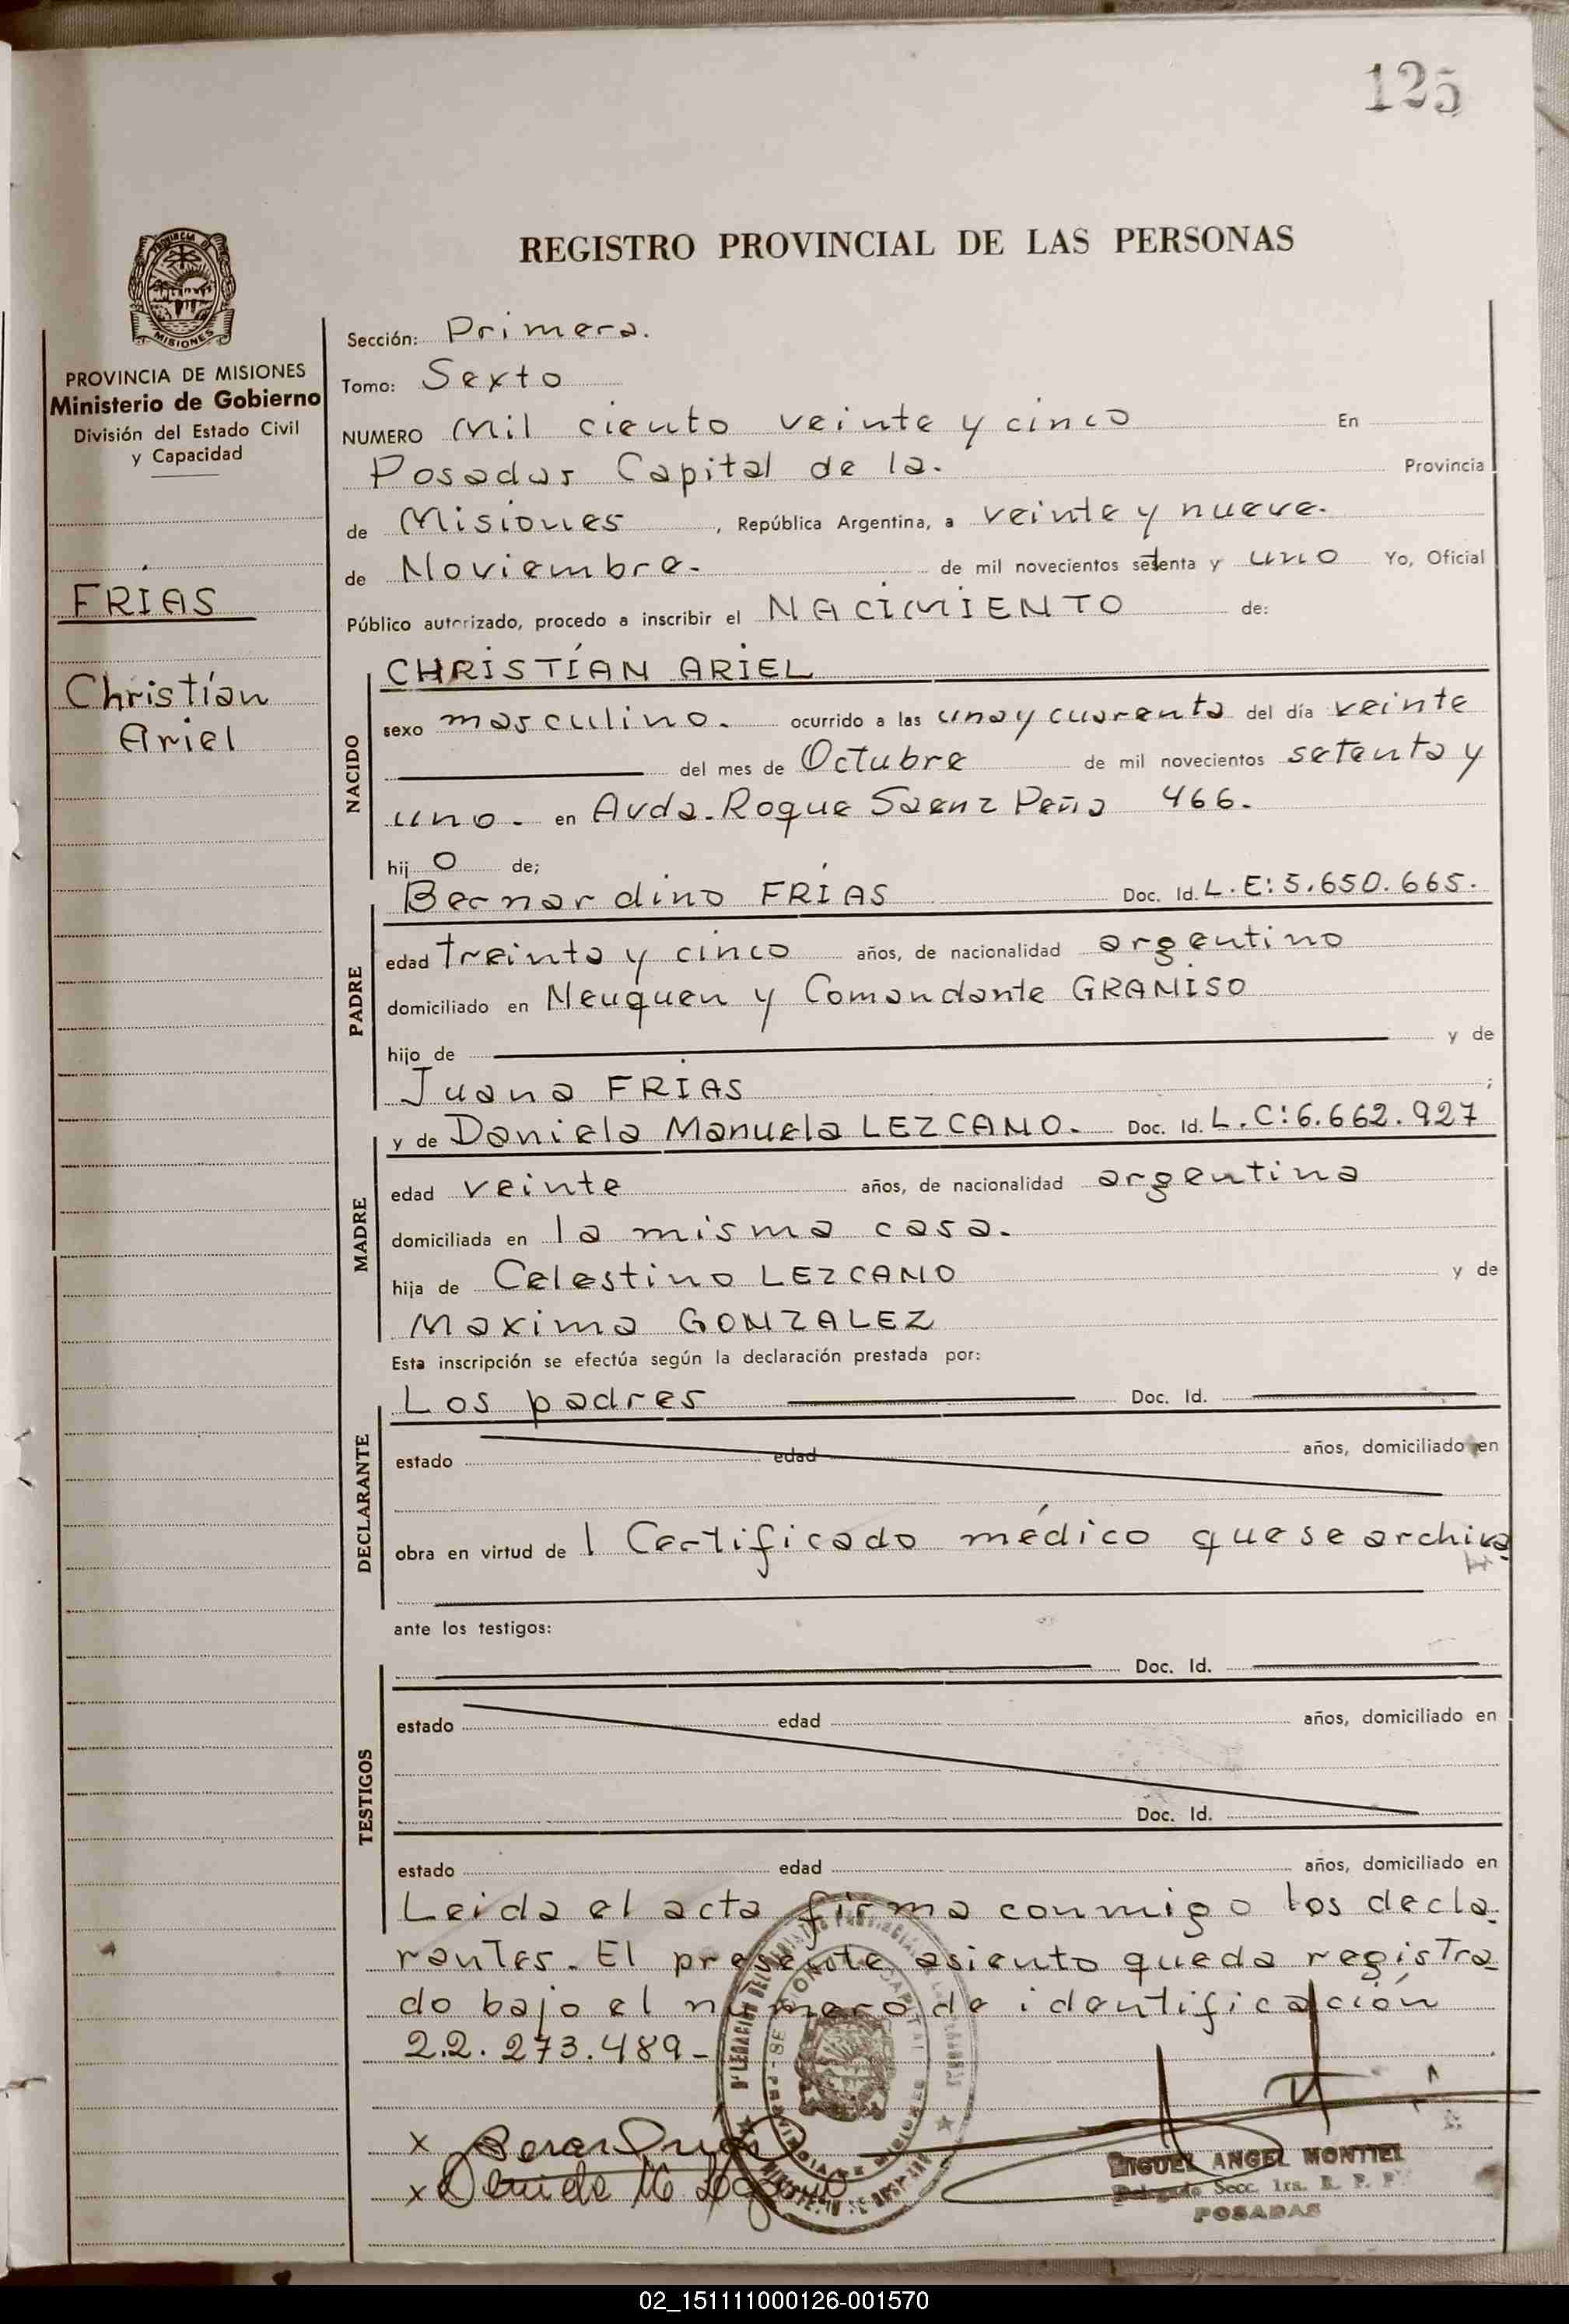 125
REGISTRO PROVINCIAL DE LAS PERSONAS
PROVINCIA DE MISIONES
Ministerio de Gobierno
División del Estado Civil
y Capacidad
FRÍAS
Christían
Ariel
Sección: Primera.
Tomo: Sexto
NUMERO Mil ciento veinte y cinco En
Posadas Capital de la. Provincia
de Misiones, República Argentina, a veinte y nueve.
de Noviembre. de mil novecientos setenta y uno Yo, Oficial
Público autorizado, procedo a inscribir el NACIMIENTO de:
NACIDO
CHRISTÍAN ARIEL
sexo masculino. ocurrido a las una y cuarenta del día veinte
del mes de Octubre de mil novecientos setenta y
uno. en Avda. Roque Saenz Peña 466.
hijo de;
PADRE
Bernardino FRÍAS Doc. Id. L.E: 5.650.665.
edad treinta y cinco años, de nacionalidad argentino
domiciliado en Neuquen y Comandante GRAMISO
hijo de y de
Juana FRÍAS ;
MADRE
y de Daniela Manuela LEZCANO. Doc. Id. L.C: 6.662.927
edad veinte años, de nacionalidad argentina
domiciliada en la misma casa.
hija de Celestino LEZCANO y de
Maxima GONZALEZ
Esta inscripción se efectúa según la declaración prestada por:
DECLARANTE
Los padres Doc. Id.
estado edad años, domiciliado en
obra en virtud de 1 Certificado médico que se archiva
ante los testigos:
TESTIGOS
Doc. Id.
estado edad años, domiciliado en
Doc. Id.
estado edad años, domiciliado en
Leida el acta firma conmigo los decla-
rantes. El presente asiento queda registra-
do bajo el número de identificación
22.273.489-
x
x Daniela M
MIGUEL ANGEL MONTIEL
Delegado Secc. 1ra. R. P. P.
POSADAS
02_151111000126-001570